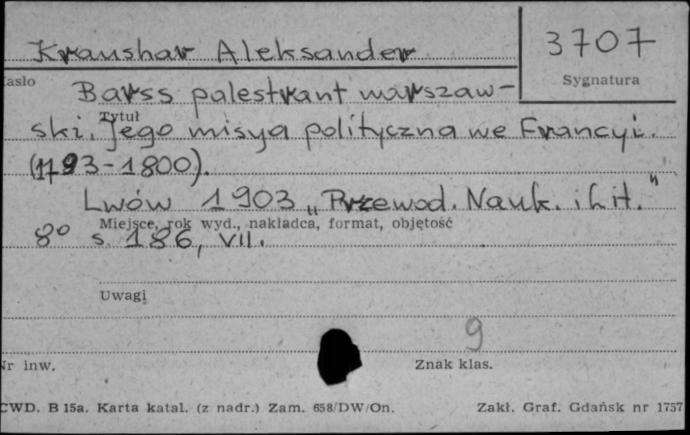 Kraushar Aleksander
3707
Sygnatura
asło
Barss palestrant warszaw-
Tytuł
ski. Jego misya polityczna we Francyi.
(1793-1800).
Lwów 1903 „Przewod. Nauk. i Lit."
Miejsce, rok wyd., nakładca, format, objętość
8° s. 186, VII.
Uwagi
9
Nr inw.
Znak klas.
CWD. B 15a. Karta katal. (z nadr.) Zam. 658/DW/On.
Zakł. Graf. Gdańsk nr 1757